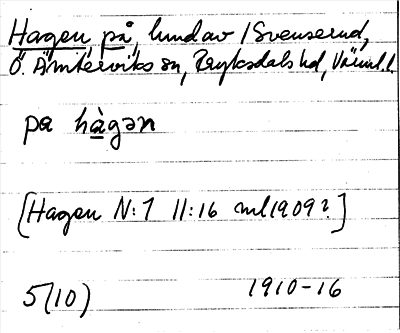 Hagen på, lund av /Svenserud,
Ö. Ämterviks sn, Fryksdals hd, Värml. l.
pa hàgən
[Hagen N:1 11:16 ml 1909?]
5(10) 1910-16